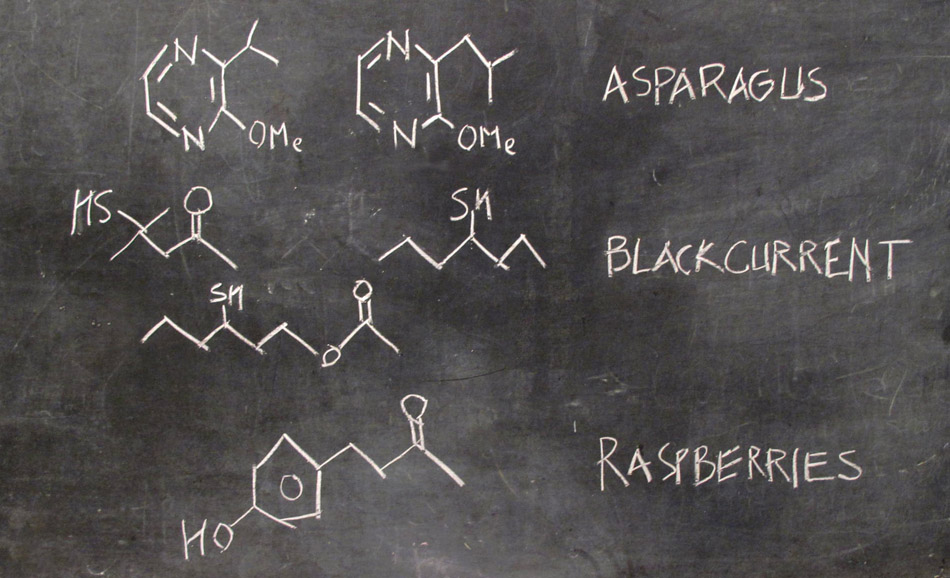 N N OMe N N OMe ASPARAGUS
HS O SH BLACKCURRENT
SH O O
O RASPBERRIES
HO